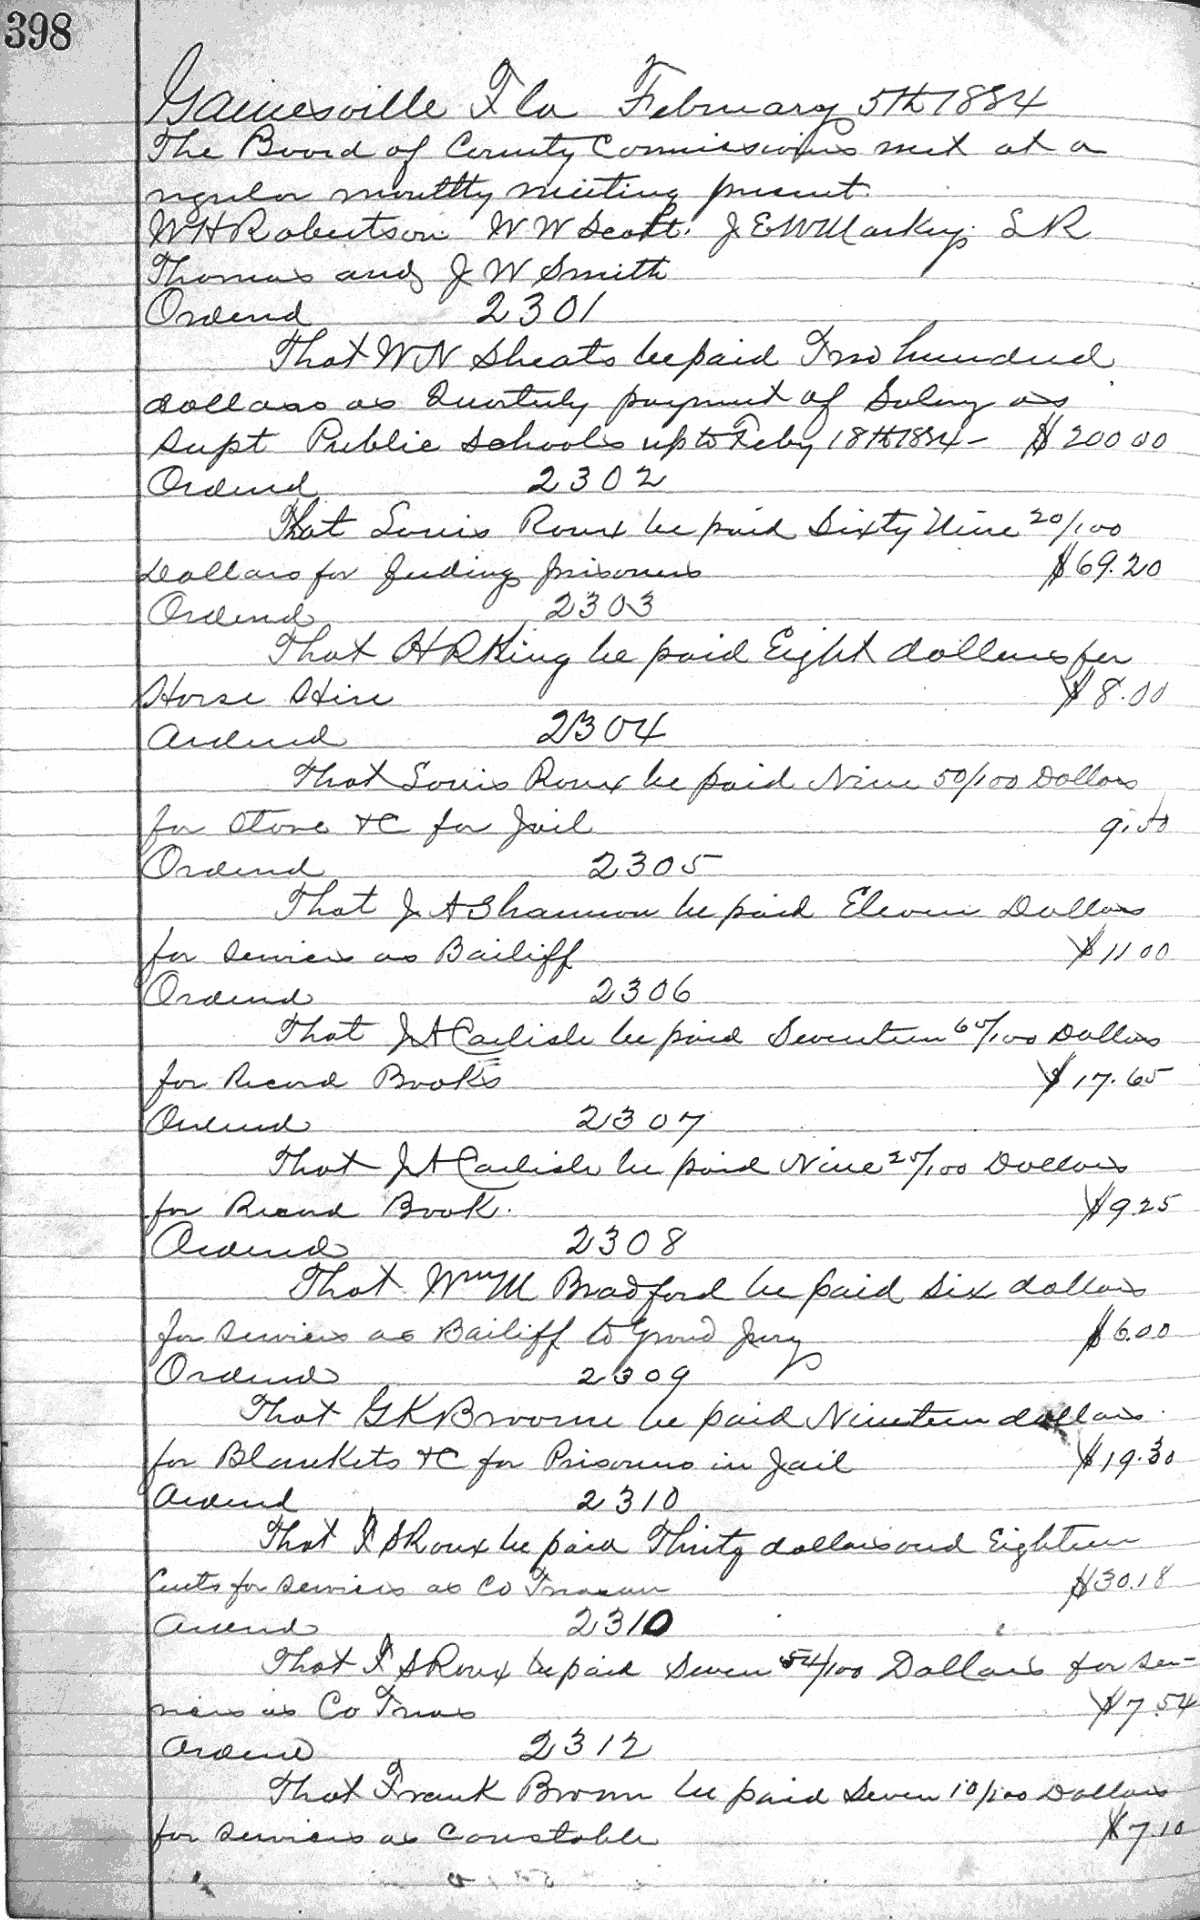 398
Gainesville Fla February 5th 1884
The Board of County Commissioners met at a
regular monthly meeting present.
W H Robertson W W Scott. J E W Markey. S R
Thomas and J W Smith
Ordered 2301
That W N Sheats be paid Two hundred
dollars as Quarterly payment of Salary as
Supt Public Schools up to Feby 18th 1884 - $200 00
Ordered 2302
That Louis Roux be paid Sixty Nine 20/100
Dollars for feeding prisoners $69.20
Ordered 2303
That H R King be paid Eight dollars for
Horse Hire $8.00
Ordered 2304
That Louis Roux be paid Nine 50/100 Dollars
for Stove &C for Jail 9.50
Ordered 2305
That J A Shannon be paid Eleven Dollars
for services as Bailiff $11 00
Ordered 2306
That J A Carlisle be paid Seventeen 65/100 Dollars
for Record Books $17.65
Ordered 2307
That J A Carlisle be paid Nine 25/100 Dollars
for Record Book. $9 25
Ordered 2308
That Wm M Bradford be paid Six dollars
for services as Bailiff to Grand Jury $6.00
Ordered 2309
That G K Broome be paid Nineteen dollars
for Blankets &C for Prisoners in Jail $19.30
Ordered 2310
That S Roux be paid Thirty dollars and Eighteen
Cents for services as Co Treasurer $30.18
Ordered 2310
That S Roux be paid Seven 54/100 Dollars for ser-
vices as Co Treas $7.54
Ordered 2312
That Frank Brown be paid Seven 10/100 Dollars
for services as Constable $7.10